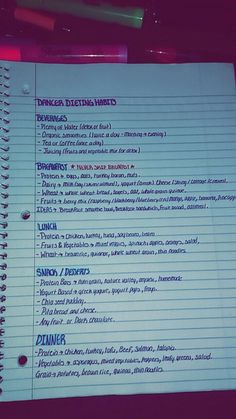 DANCER DIETING HABITS
BEVERAGES
- Plenty of Water (detox or fruit)
- Organic smoothies (twice a day - Morning & evening)
- Tea or Coffee (once a day)
- Juicing (fruits and vegetable mix for detox)
BREAKFAST ★ NEVER SKIP BREAKFAST ★
- Protein → eggs, oats, turkey bacon, nuts
- Dairy → milk yogurt Cheese
- Wheat → whole wheat bread, bagels, oat, whole grain
- Fruits → berry mix (raspberry/blackberry/blueberry etc) Mango, kiwi, bananas,
IDEAS → Breakfast smoothie bowl, Breakfast Sandwich, Fruit bowl, oatmeal.
LUNCH
- Protein → Chicken, turkey, tuna, soy beans,
- Fruits & Vegetables → mixed veggies, spinach, apples, oranges, salad,
- Wheat → brown rice, quinoa, whole wheat bread, thin noodles
SNACK / DESSERTS
- Protein Bars → nature valley, organic, homemade
- Yogurt Based → greek yogurt, yogurt pops, froyo.
- Chia seed pudding
- Pita bread and cheese.
- Any fruit or Dark chocolate.
DINNER
- Protein → Chicken, turkey, tofu, Beef, Salmon, tilapia.
- Vegetables → asparagus, mixed vegetables, peppers, leafy greens, salad.
- Grain → Potatoes, brown rice, quinoa, thin noodles